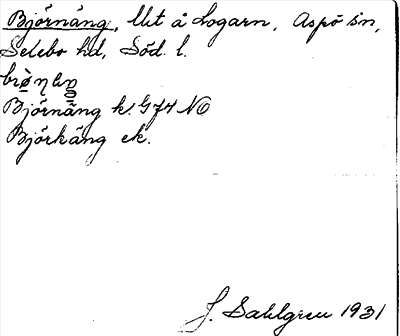 Björnäng, Utst å Logarn, Aspö sn,
Selebo hd, Söd. l.
Björnäng k. G74 NO
Björkäng ek.
J. Sahlgren 1931